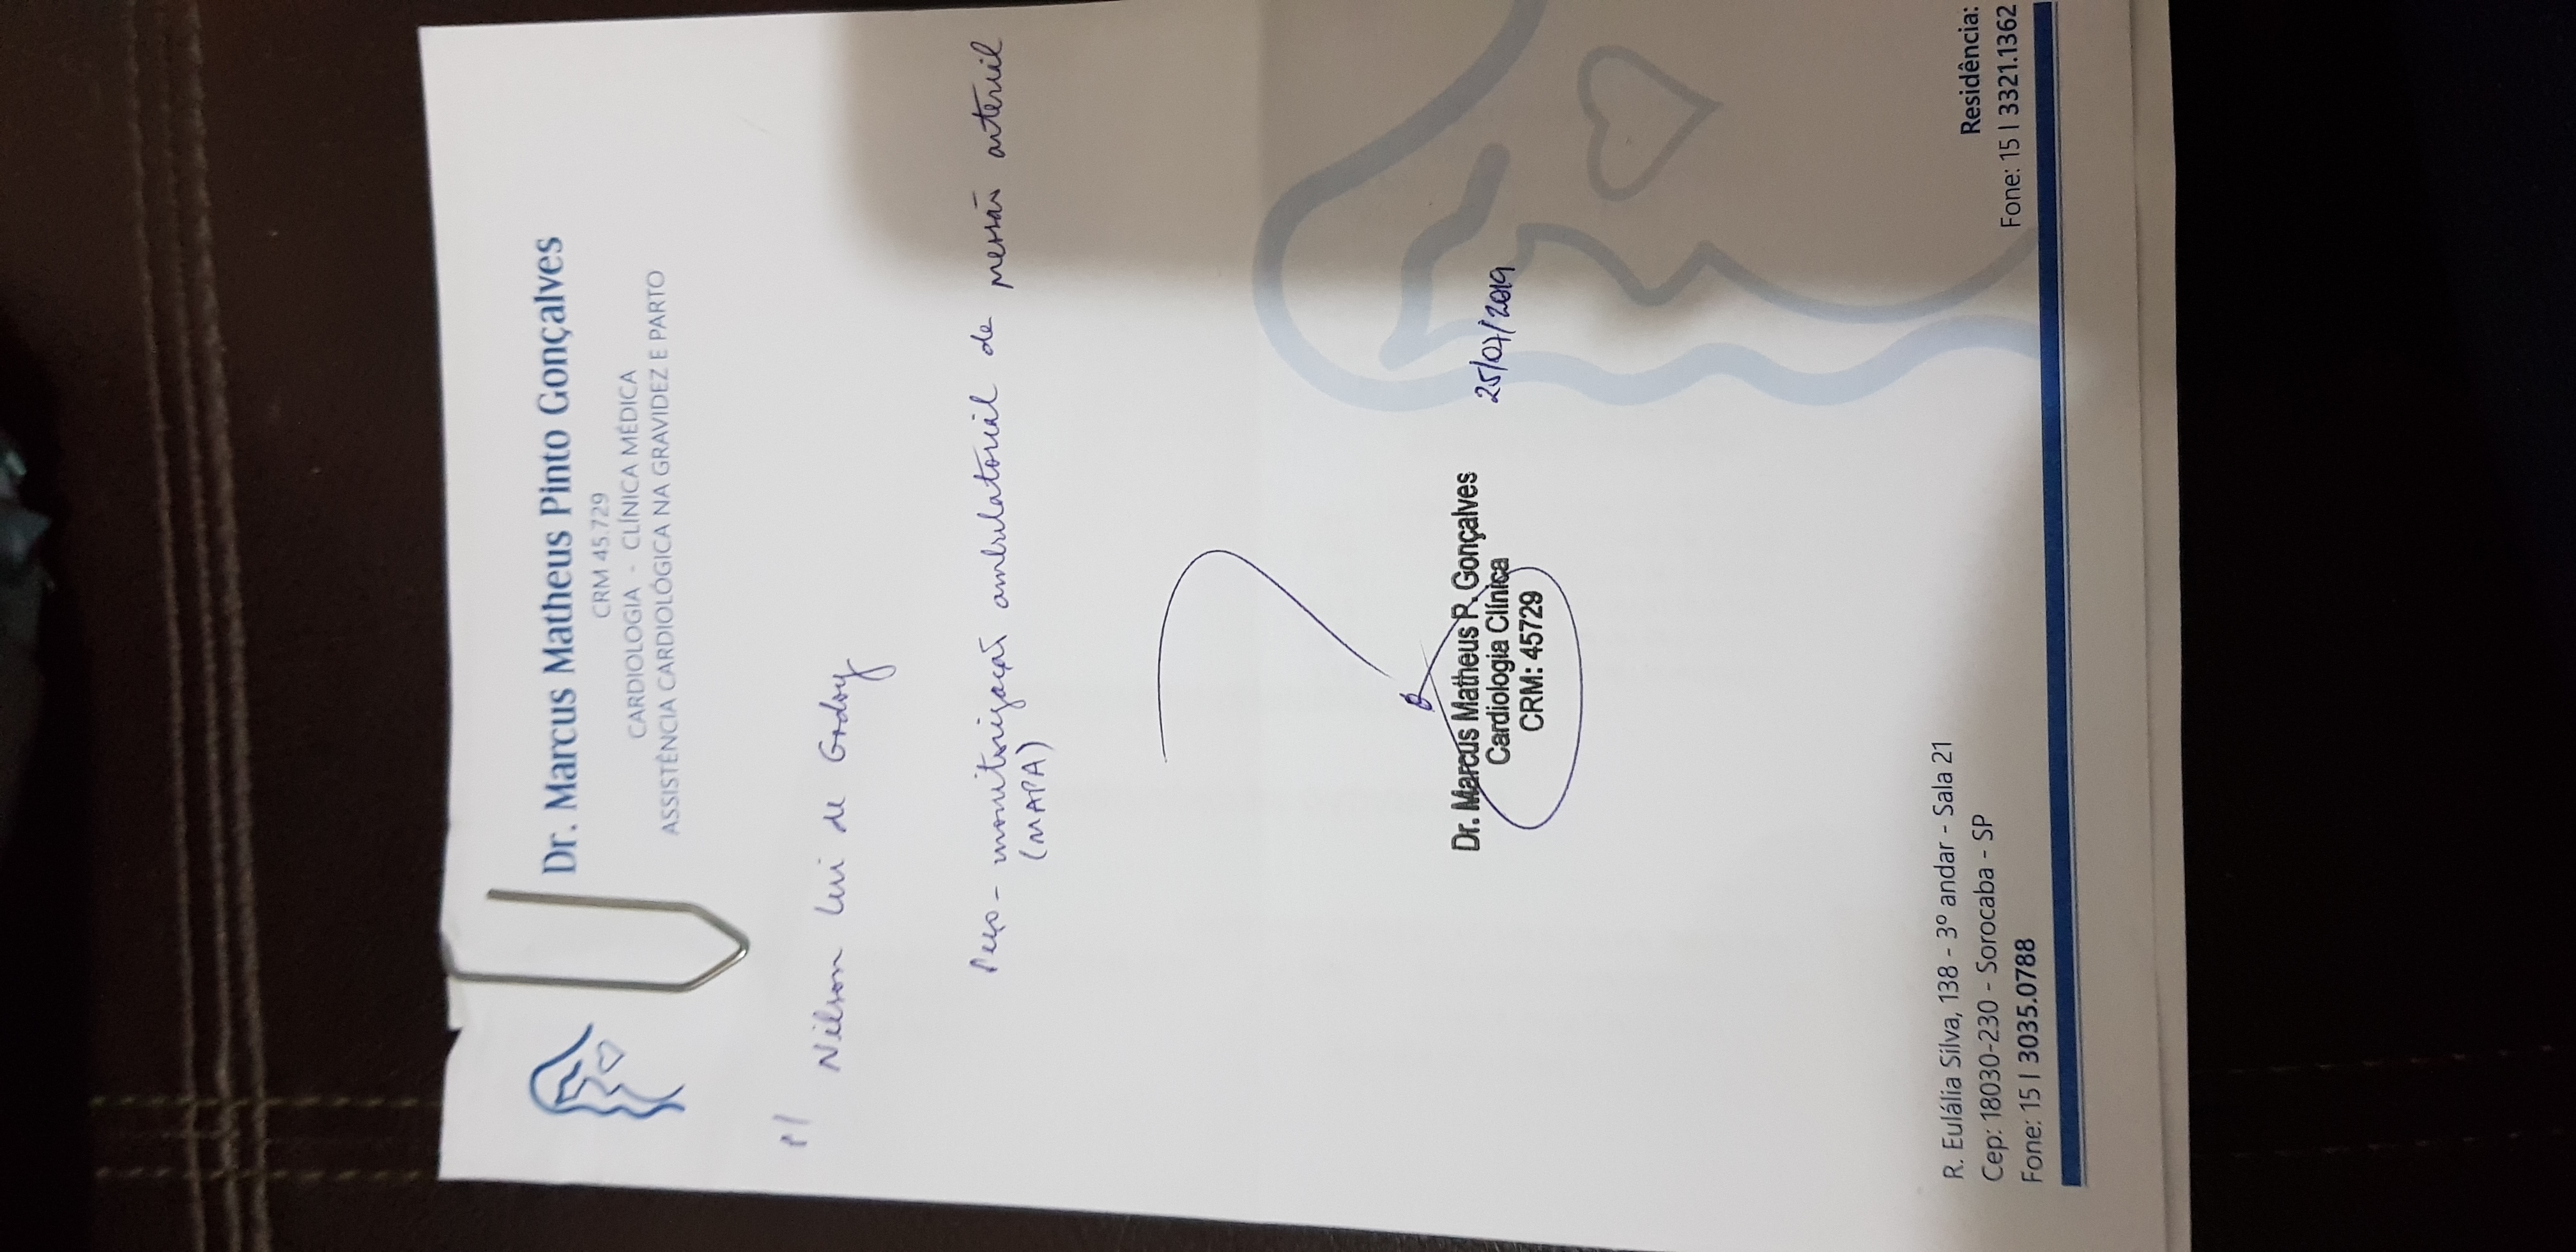 Dr. Marcus Matheus Pinto Gonçalves
CRM 45.729
CARDIOLOGIA - CLÍNICA MÉDICA
ASSISTÊNCIA CARDIOLÓGICA NA GRAVIDEZ E PARTO
P/
Nilson Lui de Godoy
Peço - monitorização ambulatorial de pressão arterial
(MAPA)
Dr. Marcus Matheus P. Gonçalves
Cardiologia Clínica
CRM: 45729
25/07/2019
R. Eulália Silva, 138 - 3º andar - Sala 21
Cep: 18030-230 - Sorocaba - SP
Fone: 15 | 3035.0788
Residência:
Fone: 15 | 3321.1362